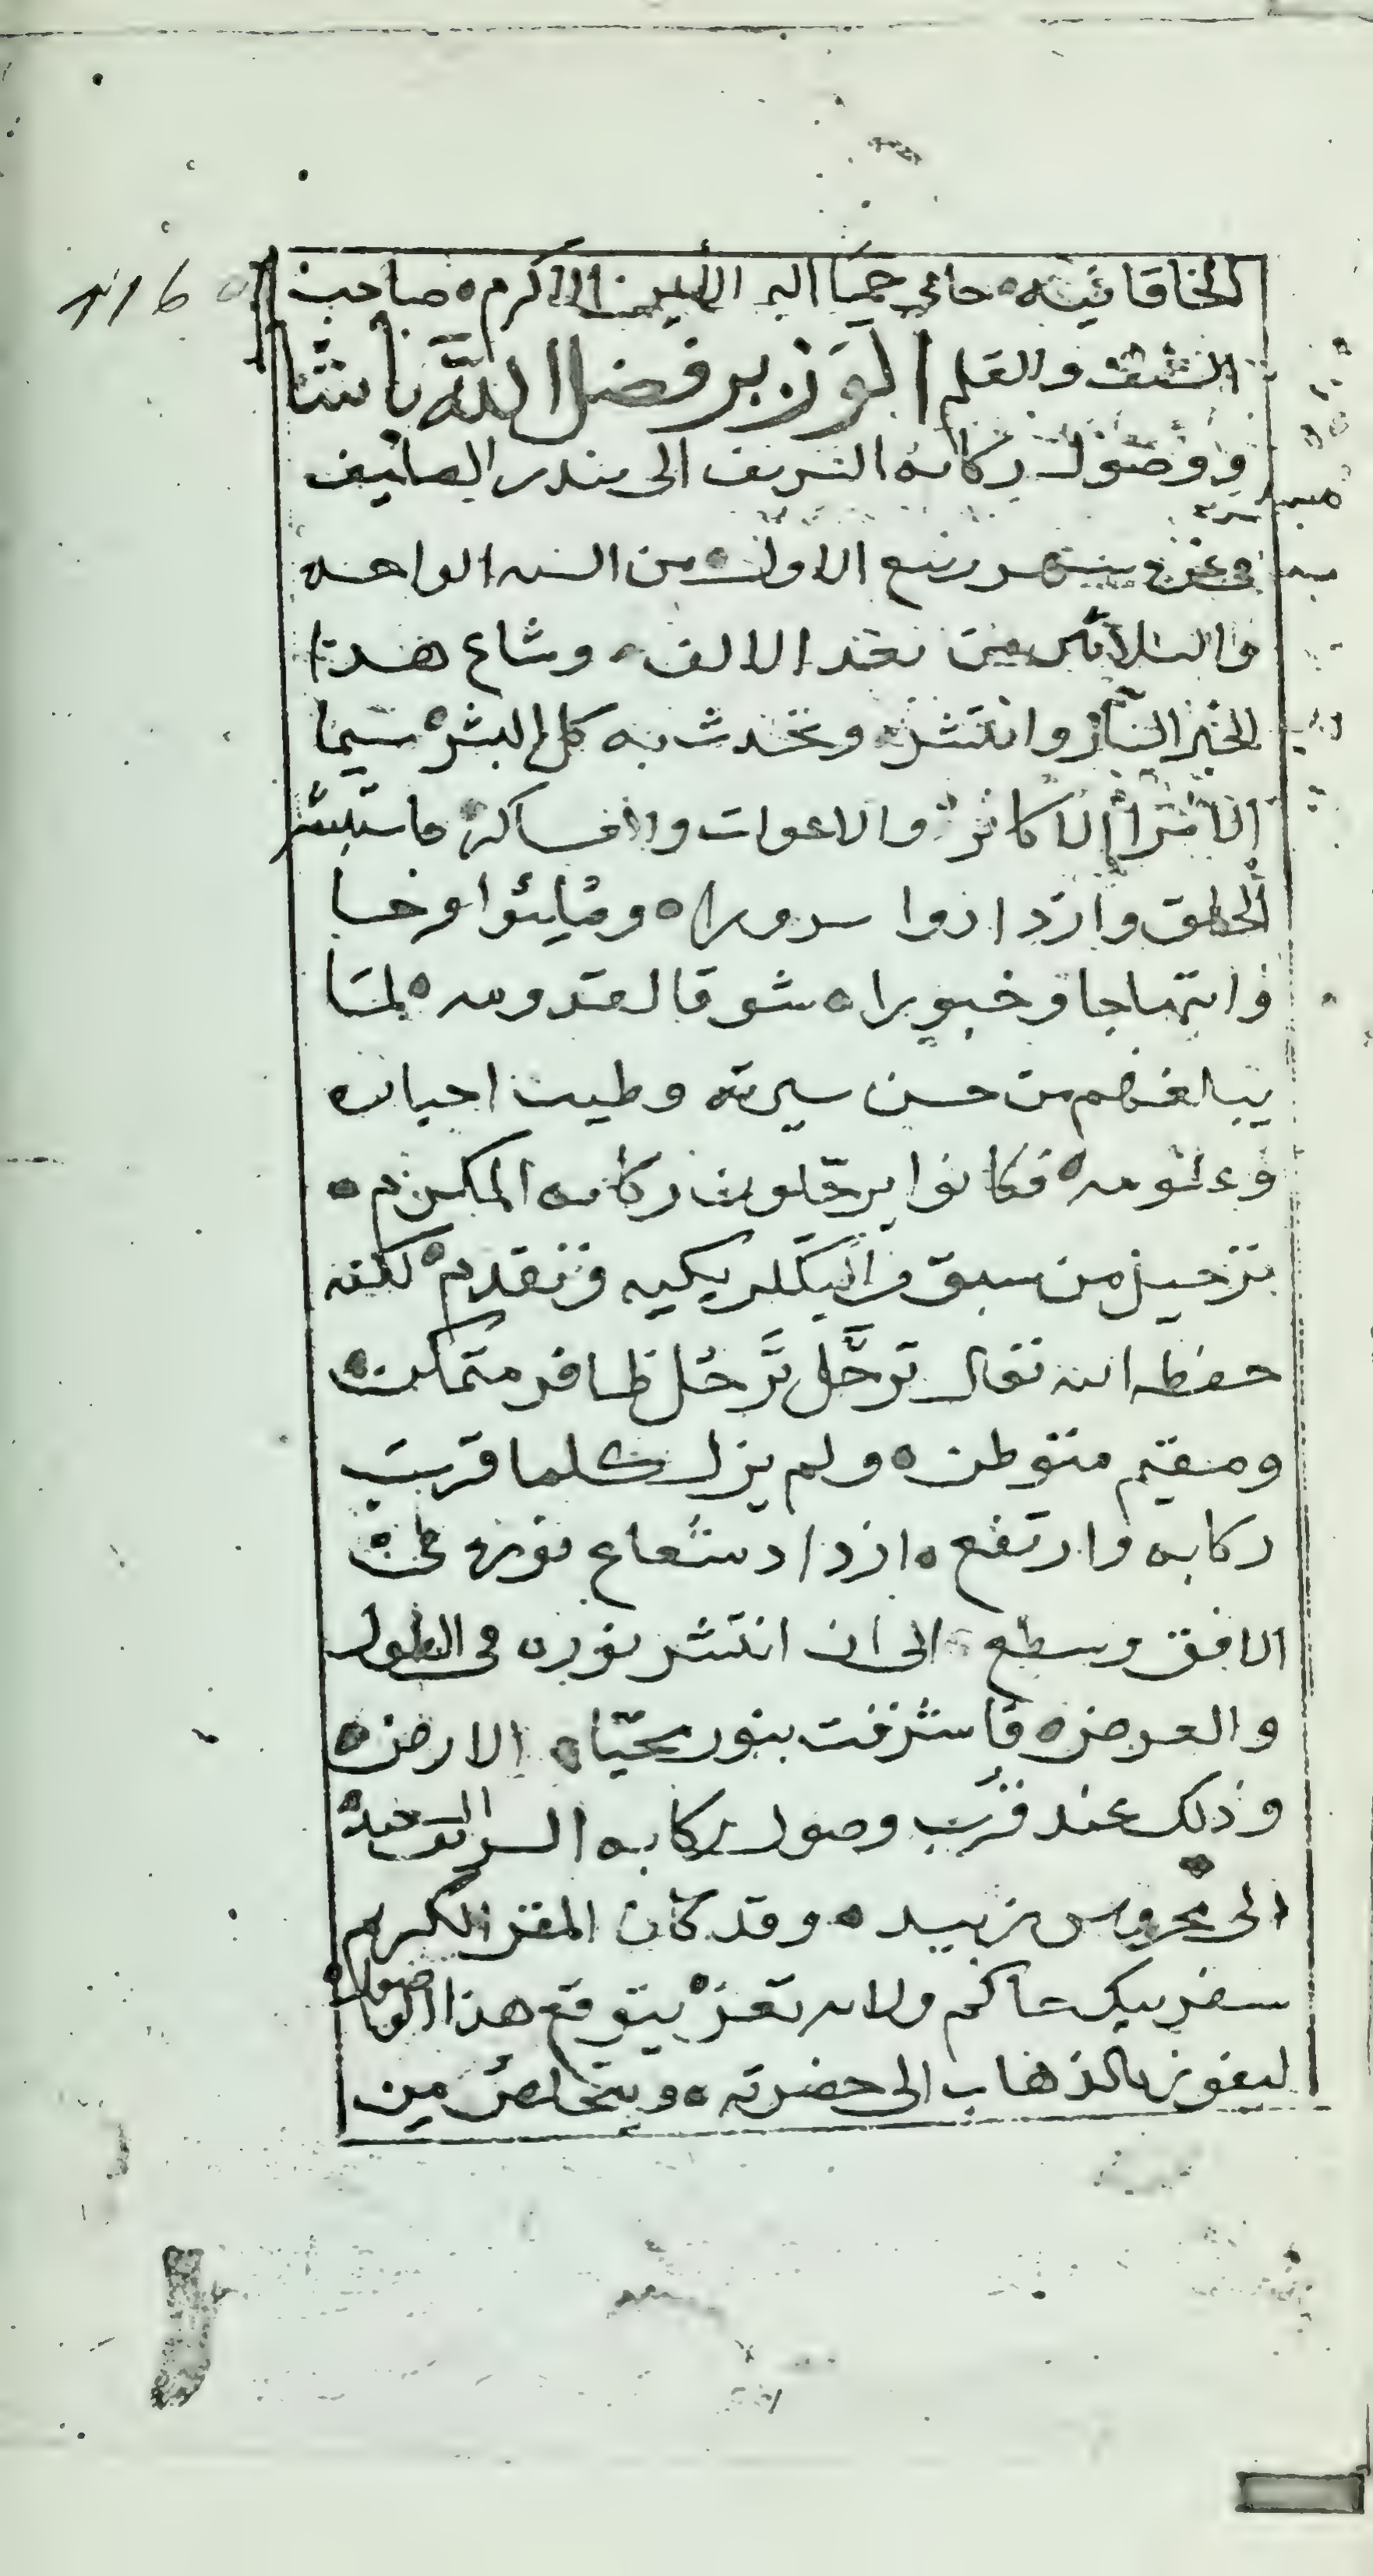 116
الخاقانيه ه حامي حما البر الأمين الاكرم ه صاحب
السيف والقلم الوزير فضل الله باشا
ووصول ركابه الشريف الى بندر الصليف
في غرة شهر ربيع الاول من السنه الواحده
والثلاثين بعد الالف ه وشاع هذا
الخبر السار وانتشر ه وتحدث به كل البشر ه سيما
الامراء الاكابر ه والاعوان والعساكر ه فاستبشر
الخلق وازدادوا سرورا ه ومليوا فرحا
وابتهاجا وحبورا ه شوقا لقدومه ه لما
يبالغهم من حسن سيرته وطيب اخباره
وعلومه ه فكانوا يرحلون ركابه المكرم ه
ترحيل من سبق والبكلربكيه وتقدم ه لكنه
حفظه الله تعالى ترحَّل تَرحُل ظافر متمكن ه
ومقيم متوطن ه ولم يزل كلما قربت
ركابه وارتفع ه ازداد شعاع نوره في
الافق وسطع ه الى ان انتشر نوره في الطول
والعرض ه فاشرقت بنور محيّاه الارض ه
وذلك عند قرب وصول ركابه السعيد ه
الى محروس زبيد ه وقد كان المقر الكريم
سفر بيك حاكم ولايه تعز ه يتوقع هذا الوصول ه
ليفوز بالذهاب الى حضرته ه ويتخلص من